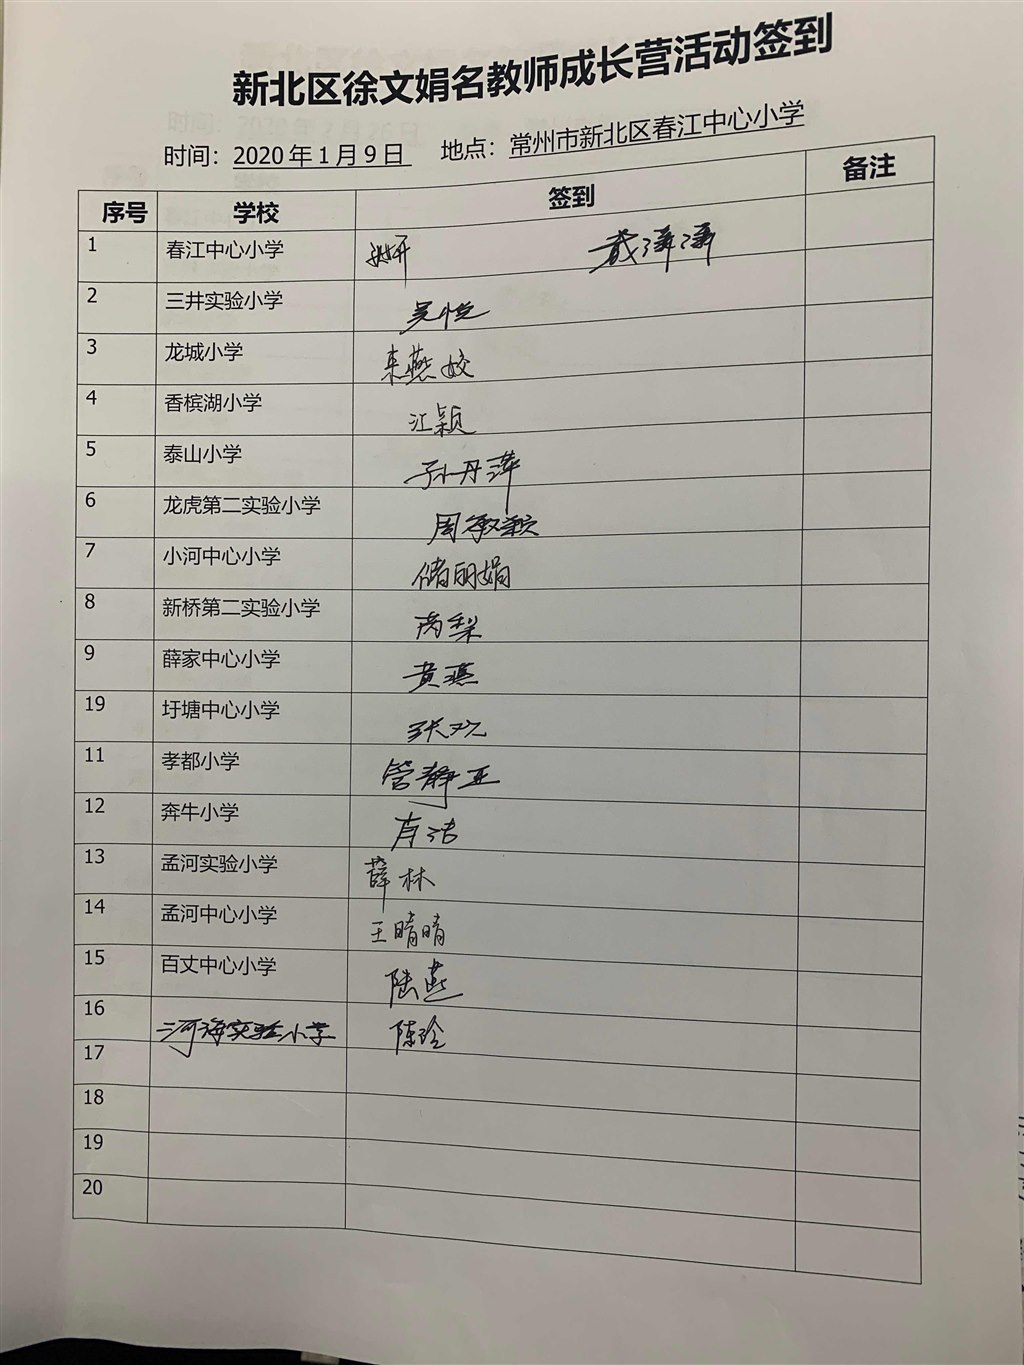 新北区徐文娟名教师成长营活动签到
时间：2020年1月9日 地点：常州市新北区春江中心小学
序号 学校 签到 备注
1 春江中心小学
2 三井实验小学 吴恺
3 龙城小学 来燕姣
4 香槟湖小学 江颖
5 泰山小学 孙丹萍
6 龙虎第二实验小学 周敏颖
7 小河中心小学 储丽娟
8 新桥第二实验小学
9 薛家中心小学 黄燕
19 圩塘中心小学 张欢
11 孝都小学 管静亚
12 奔牛小学 肖洁
13 孟河实验小学 薛林
14 孟河中心小学 王晴晴
15 百丈中心小学 陆燕
16 河海实验小学 陈玲
17
18
19
20